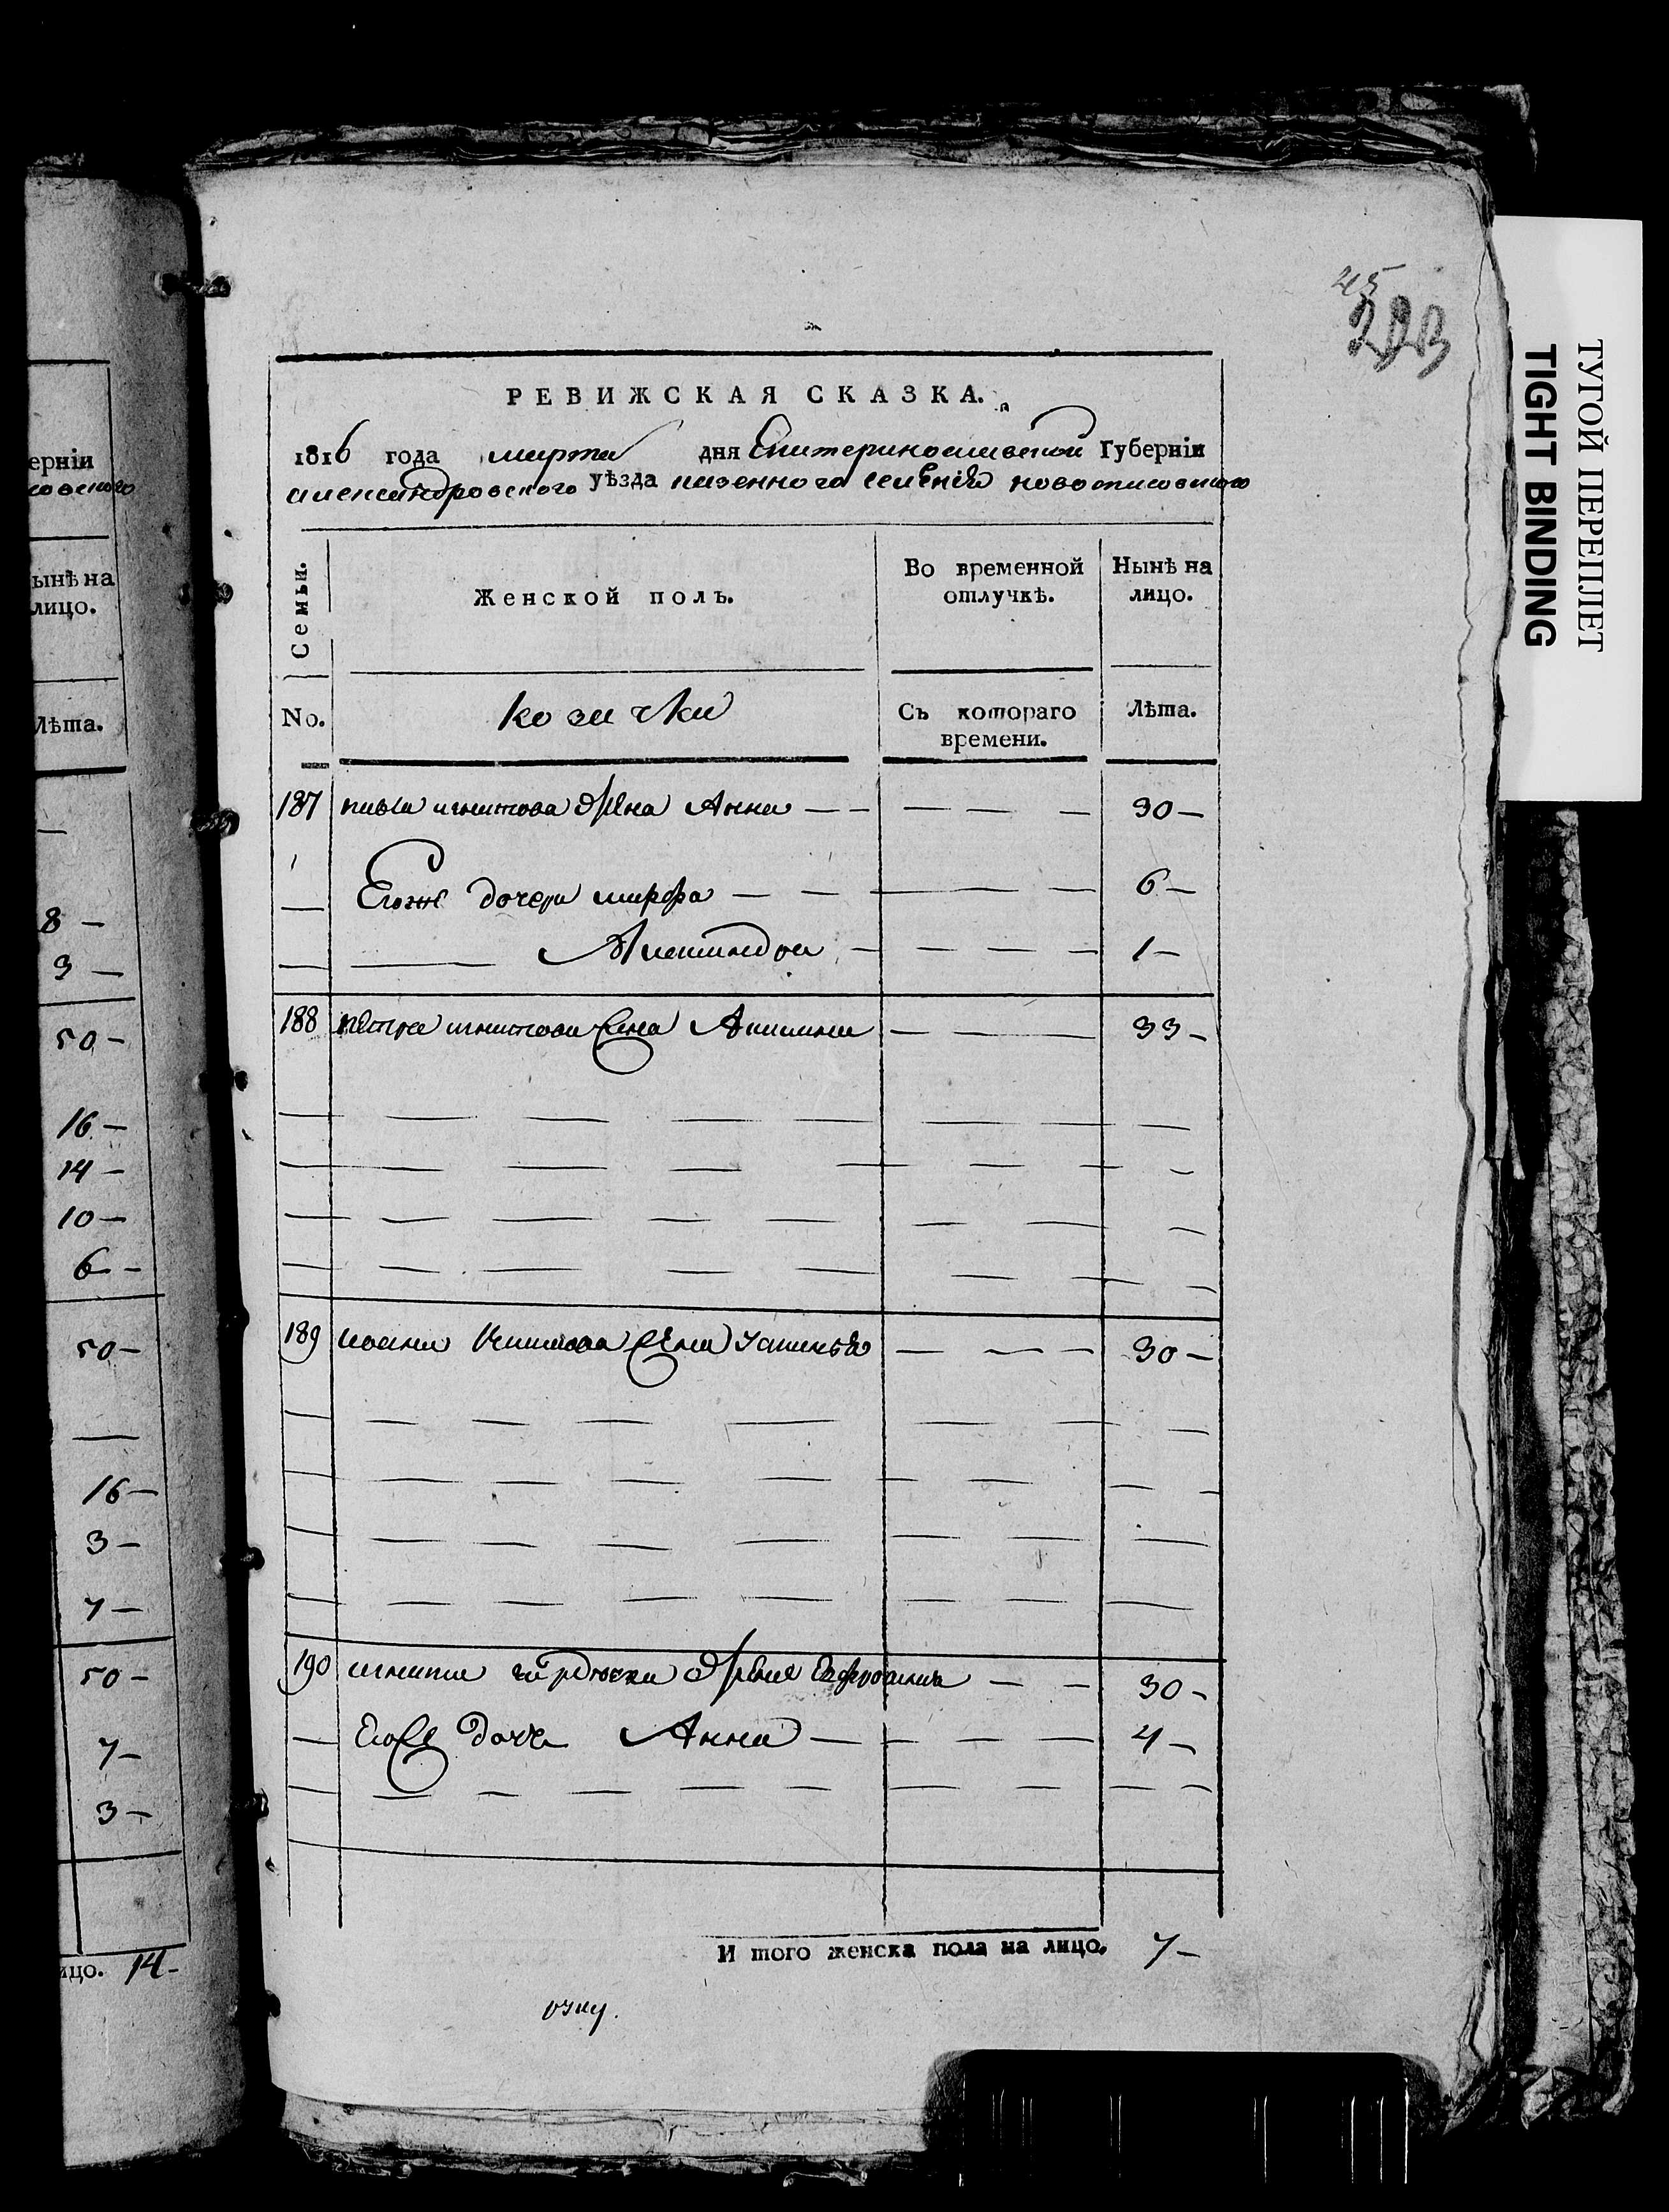 ерніи
совского
ынѣ на
лицо.
Лѣта.
8 —
3 —
50 —
16 —
14 —
10 —
6 —
50 —
16 —
3 —
7 —
50 —
7 —
3 —
ицо. 14 -
45
ТУГОЙ ПЕРЕПЛЕТ
TIGHT BINDING
РЕВИЖСКАЯ СКАЗКА.
1816 года марта дня Екатеринославской Губерніи
александровского уѣзда казенного селения
Семьи.
Женской полъ.
Во временной отлучкѣ.
Нынѣ на лицо.
No.
козачки
Съ котораго времени.
Лѣта.
187 павла игнатова жена Анна — — — — — 30 —
Егоже дочери марфа — — — — — 6 —
— — — — 1 —
188 петра игнатова жена — — — 33 -
189 ивана жена — — — — 30 —
190 игната жена — — 30 -
Егоже дочь Анна — — — — 4 —
И того женска пола на лицо. 7 —